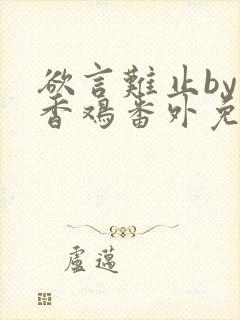 欲言難止by
香鸡番外免
盧邁